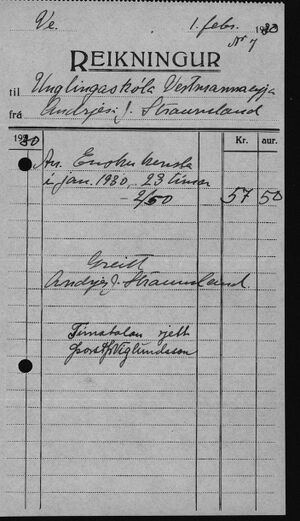 Ve. 1. febr. 1930
Nr 7
REIKNINGUR
til Unglingaskóla Vestmannaeyja
frá Andrjesi J. Straumland
1930 Kr. aur.
An. Ensku kensla
í jan. 1930, 23 tímar
2/50 57 50
Greitt
Andrjes J. Straumland.
Tímatalan rjett
Þorst Þ Víglundsson